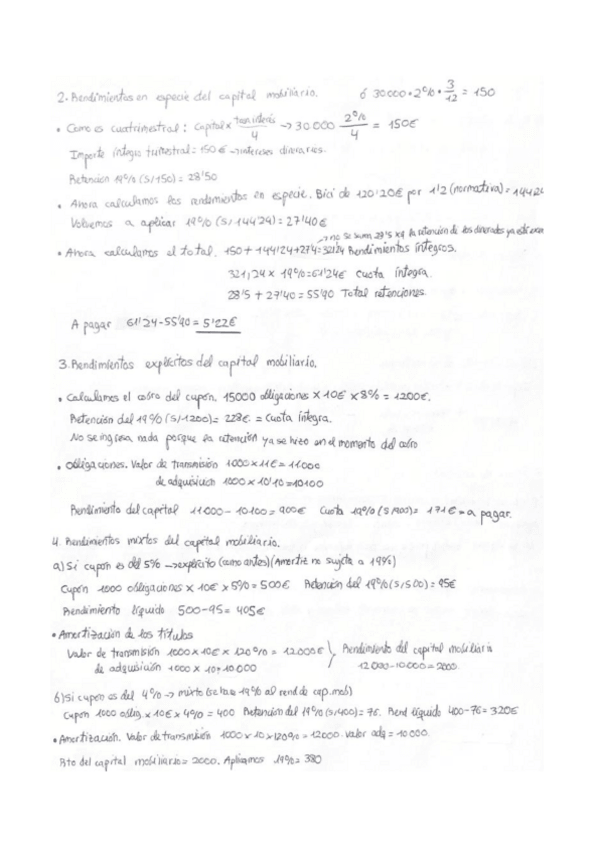 2. Rendimientos en especie del capital mobiliario. ó 30000 • 2% • 3/12 = 150
• Como es cuatrimestral: Capital x tasa interés/4 → 30 000 2%/4 = 150€
Importe íntegro trimestral = 150€ → intereses dinerarios.
Retención 19% (S/150) = 28'50
• Ahora calculamos los rendimientos en especie. Bici de 120'20€ por 1'2 (normativa) = 144'24
Volvemos a aplicar 19% (S/144'24) = 27'40€
→ no se suma 28'5 xq la retención de los dinerarios ya está
• Ahora calculamos el total. 150 + 144'24 + 27'4 = 321'24 Rendimientos íntegros.
321,24 x 19% = 61'24€ Cuota íntegra.
28'5 + 27'40 = 55'90 Total retenciones.
A pagar 61'24 - 55'90 = 5'22€
3. Rendimientos explícitos del capital mobiliario.
• Calculamos el cobro del cupón. 15000 obligaciones x 10€ x 8% = 1200€.
Retención del 19% (S/1200) = 228€. = Cuota íntegra.
No se ingresa nada porque la retención ya se hizo en el momento del cobro
• Obligaciones. Valor de transmisión 1000 x 11€ = 11000
de adquisición 1000 x 10'10 = 10100
Rendimiento del capital 11000 - 10100 = 900€ Cuota 19% (S/900) = 171€ = a pagar.
4. Rendimientos mixtos del capital mobiliario.
a) Si cupón es del 5% → explícito (como antes) (Amortiz no sujeta a 19%)
Cupón 1000 obligaciones x 10€ x 5% = 500€ Retención del 19% (S/500) = 95€
Rendimiento líquido 500 - 95 = 405€
• Amortización de los títulos
Valor de transmisión 1000 x 10€ x 120% = 12000€ } Rendimiento del capital mobiliario
de adquisición 1000 x 10 = 10.000 12000 - 10000 = 2000.
b) Si cupón es del 4% → mixto (se hace 19% al rend de cap. mob)
Cupón 1000 oblig. x 10€ x 4% = 400 Retención del 19% (S/400) = 76. Rend líquido 400 - 76 = 320€
• Amortización. Valor de transmisión 1000 x 10 x 120% = 12000. Valor adq = 10000.
Rto del capital mobiliario = 2000. Aplicamos 19% = 380